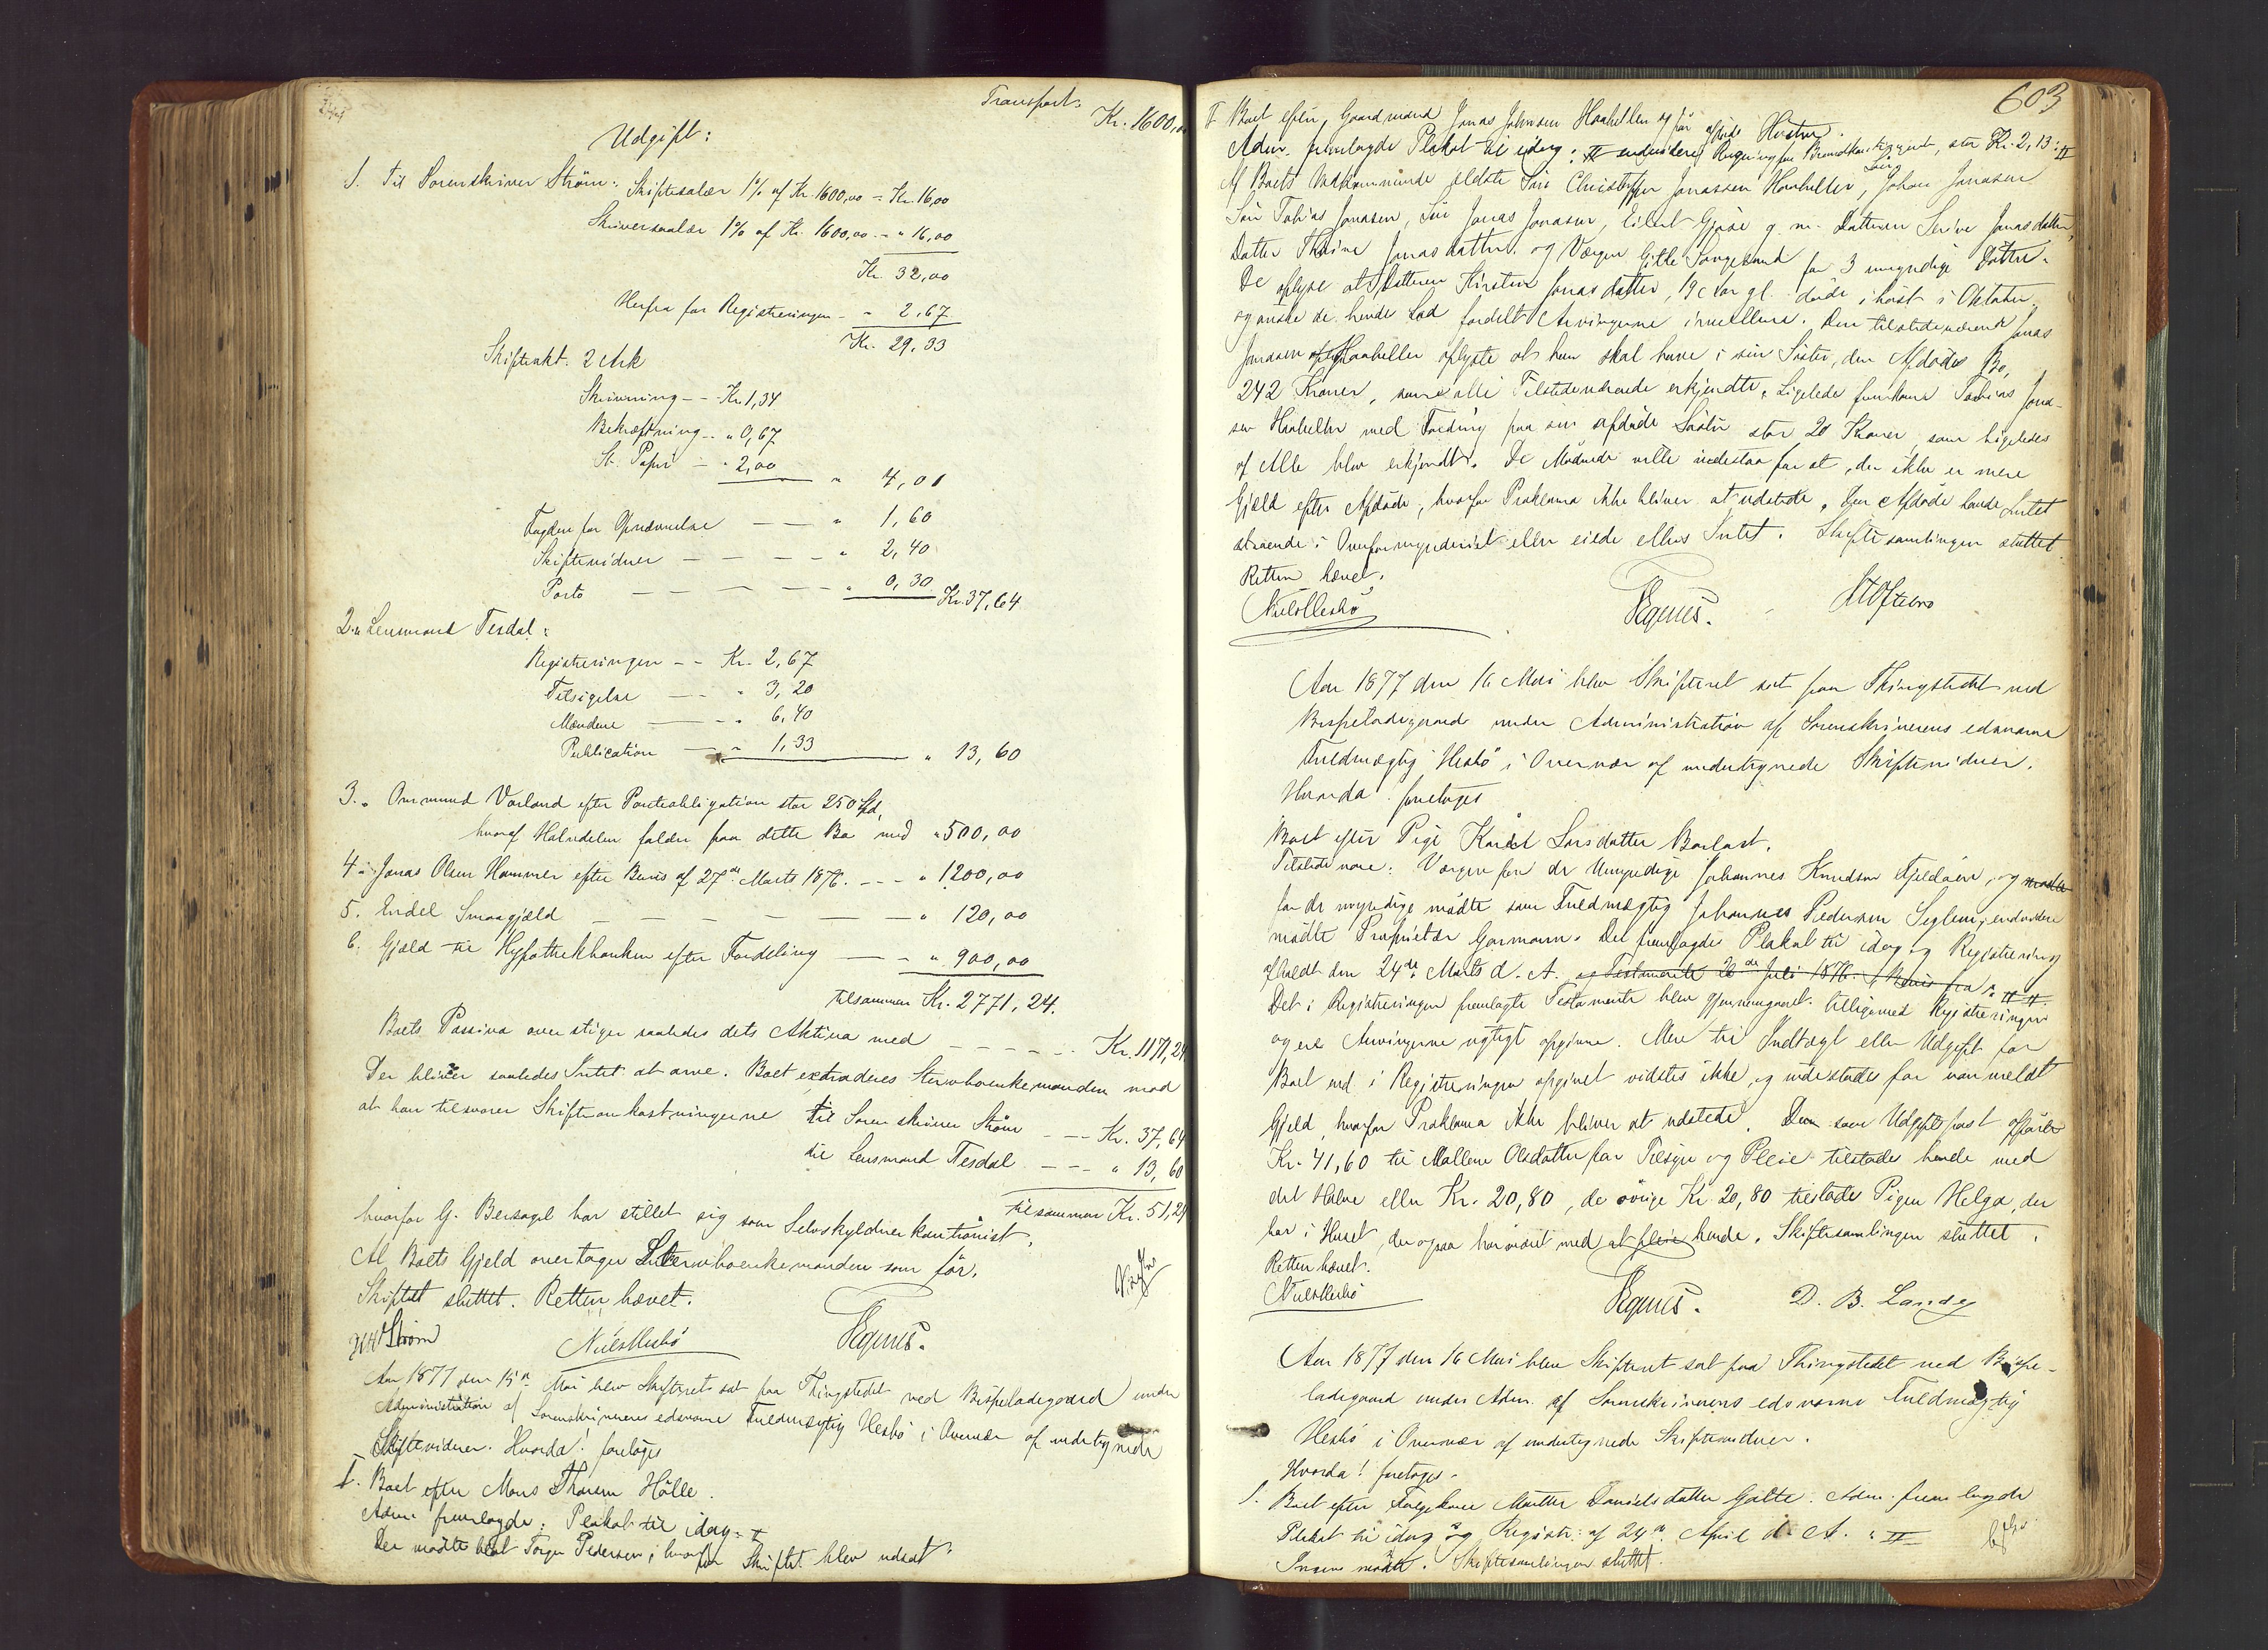 Transport: Kr. 1600,00
Udgift:
1. Til Sorenskriver Strøm: Skiftesalær 1% af Kr. 1600,00 = Kr. 16,00
Skriversalær 1% af Kr. 1600,00 - " 16,00
Kr. 32,00
Herfra for Registreringen - " 2,67
Kr. 29,33
Skifteakt. 2 Ark
Skrivning - - Kr. 1,34
Bekræftning - " 0,67
St. Papir - " 2,00 " 4,01
Fogden for Opnævnelse - - " 1,60
Skiftevidner - - - - " 2,40
Porto - - - - " 0,30 Kr. 37,64
2. " Lensmand Tesdal:
Registreringen - - Kr. 2,67
Tilsigelse - - " 3,20
Mændene - - " 6,40
Publication - " 1,33 " 13,60
3. " Ommund Varland efter Panteobligation stor 250 Spd,
hvoraf Halvdelen falder paa dette Bo med " 500,00
4. " Jonas Olsen Hammer efter Bevis af 27de Marts 1876. - - - " 1200,00
5. Endel Smaagjæld - - - - - - " 120,00
6. Gjæld til Hypothekbanken efter Fordeling - - " 900,00
tilsammen Kr. 2771,24.
Boets Passiva overstiger saaledes dets Aktiva med - - - - - Kr. 1171,24
Der bliver saaledes Intet at arve. Boet extraderes Stervboenkemanden mod
at han tilsvarer Skifteomkostningerne til Sorenskriver Strøm - - Kr. 37,64
til Lensmand Tesdal - - - " 13,60
tilsammen Kr. 51,24
hvorfor G. Bersagel har stillet sig som Selvskyldnerkautionist.
Al Boets Gjeld overtager Stervboenkemanden som før.
Skiftet sluttet. Retten hævet.
Strøm Nils Hesbø
Aar 1877 den 15de Mai blev Skifteret sat paa Thingstedet ved Bispeladegaard under
Administration af Sorenskriverens edsvorne Fuldmægtig Hesbø i Overvær af undertegnede
Skiftevidner. Hvorda! foretoges
1. Boet efter Mons Thorsen Hölle.
Adm. fremlagde: Plakat til idag: I
Der mødte blot Torger Pedersen, hvorfor Skiftet blev udsat.
603
Boet efter Gaardmand Jonas Johnsen Haahellen og før afdøde Hustru.
Adm. fremlagde Plakat til idag: II endvidere Regning for Brandkontingent, stor Kr. 2,13: II
Af Boets Vedkommende ældste Søn Christoffer Jonassen Haahellen, Søn Johan Jonasen
Søn Tobias Jonasen, Søn Jonas Jonasen, Eilert Gjöse g. m. Datteren Serine Jonasdatter,
Datter Thrine Jonasdatter. og Værgen Gitle Sangeland for 3 umyndige Døttre.
De oplyse at Datteren Kirstine Jonasdatter, 19 Aar gl. døde i høst i Oktober.
og ønske de hende Lod fordelt Arvingerne imellem. Den tilstedeværende Jonas
Jonasen Haahellen oplyste at han skal have i sin Søster, den Afdødes Bo,
242 Kroner, som alle Tilstedeværende erkjendte. Ligelede fremkom Tobias Jona-
sen Haahellen med Fordring paa sin afdøde Søster stor 20 Kroner som ligeledes
af Alle blev erkjendt. De Mødende ville indestaa for at der ikke er mere
Gjæld efter Afdøde, hvorfor Proklama ikke bliver at udstede. Den Afdøde havde Intet
staaende i Overformynderiet eller eiede ellers Intet. Skiftesamlingen sluttet
Retten hævet.
Nils Hesbø
Aar 1877 den 16 Mai blev Skifteret sat paa Thingstedet ved
Bispeladegaard under Administration af Sorenskriverens edsvorne
Fuldmægtig Hesbø i Overvær af undertegnede Skiftevidner.
Hvorda! foretoges
Boet efter Pige Larsdatter
Tilstede vare: Værgen for de Umyndige Johannes Knudsen Fjeldøen, og mødte
for de myndige mødte som Fuldmægtig Johannes Pedersen Seglem, endvidere
mødte Proprietær Garmann. Det fremlagdes Plakat til idag og Registrering
afholdt den 24de Marts d. A. og Testamente 26de Juli 1876. og Bevis fra : II II
Det i Registreringen fremlagte Testamente blev gjennemgaaet tilligemed Registreringen
og ere Arvingerne rigtigt opgivne. Mere til Indtægt eller Udgift for
Boet end i Registreringen opgivet vidstes ikke, og indestodes for uanmeldt
Gjeld, hvorfor Proklama ikke bliver at udstede. Den som Udgiftspost opførte
Kr. 41,60 til Mallene Olsdatter for Tilsyn og Pleie tilstodes hende med
det Halve eller Kr. 20,80, de øvrige Kr. 20,80 tilstodes Pigen Helga, der
bor i Huset, der ogsaa har været med at pleie hende. Skiftesamlingen sluttet.
Retten hævet.
Nils Hesbø D. B. Lande
Aar 1877 den 16 Mai blev Skifteret sat paa Thingstedet ved Bispe-
ladegaard under Adm. af Sorenskriverens edsvorne Fuldmægtig
Hesbø i Overvær af undertegnede Skiftevidner.
Hvorda! foretoges.
1. Boet efter Føgekone Marthe Danielsdatter Galte. Adm. fremlagde
Plakat til idag og Registr: af 24de April d. A. : II
Ingen mødte. Skiftesamlingen sluttet.